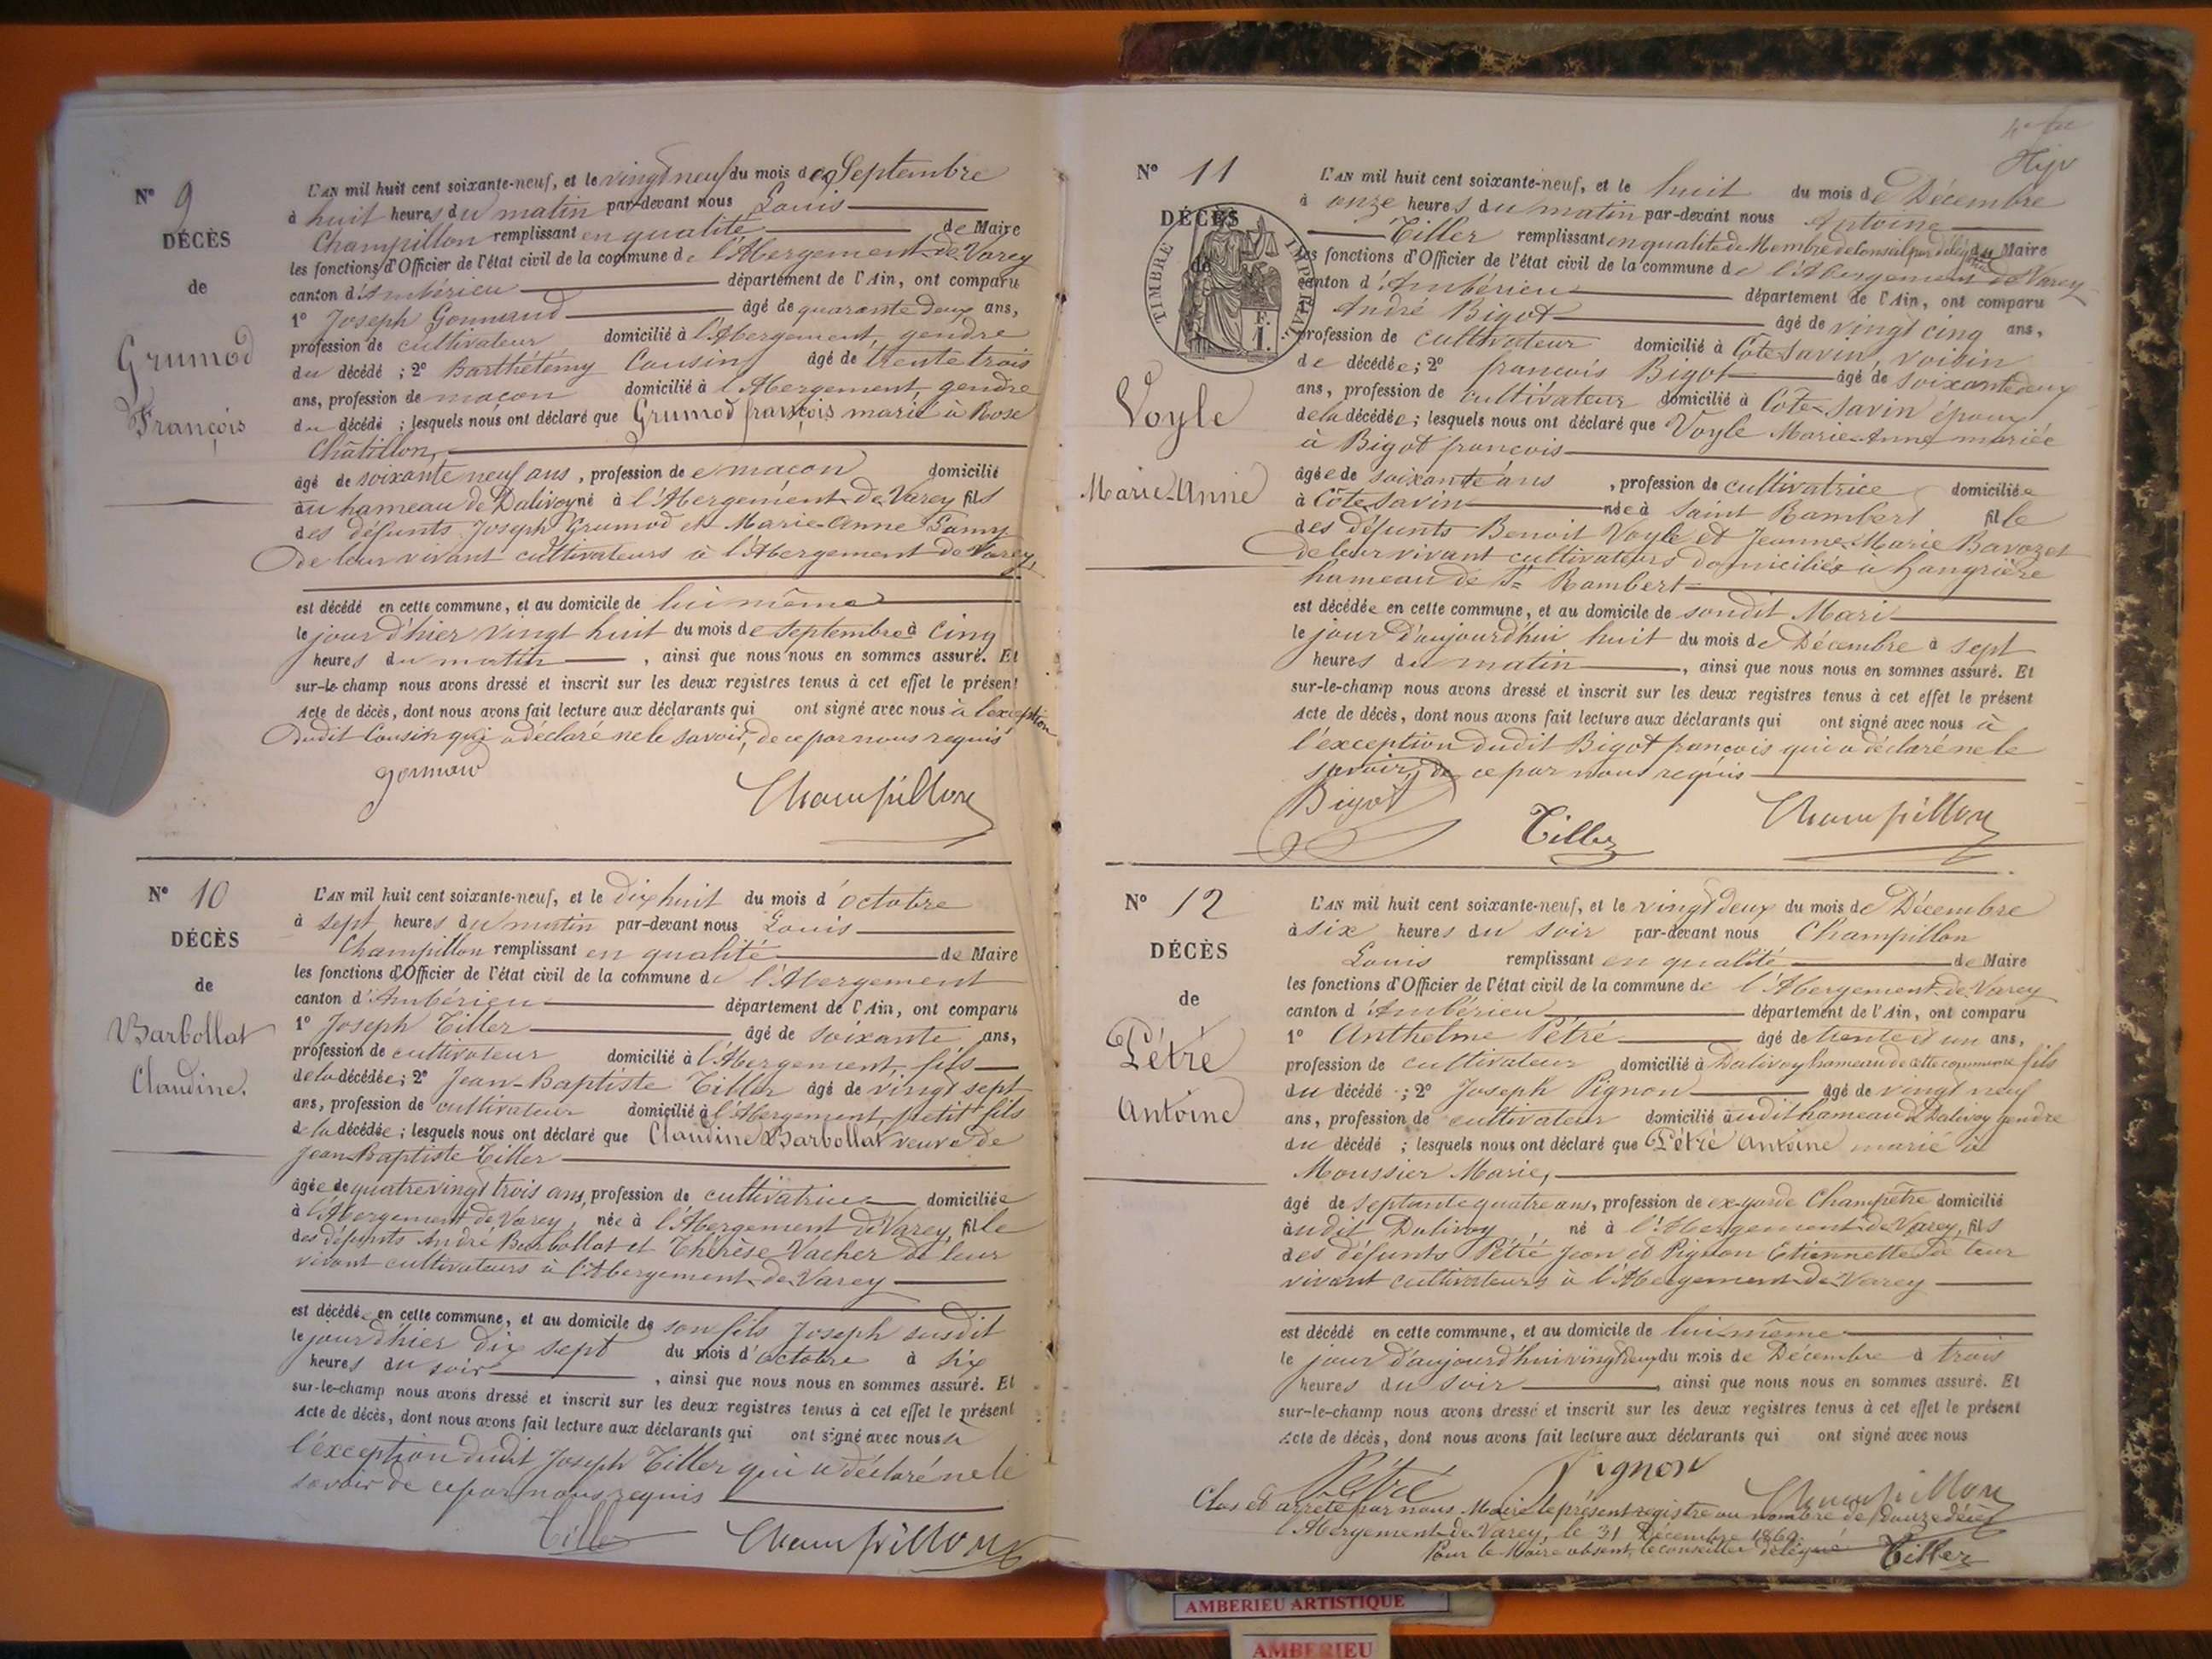 N° 9
DÉCÈS
de
Grumod
François
L'AN mil huit cent soixante-neuf, et le vingt neuf du mois de Septembre
à huit heures du matin par-devant nous Louis
Champillon remplissant en qualité de Maire
les fonctions d'Officier de l'état civil de la commune de l'Abergement-de-Varey
canton d'Ambérieu département de l'Ain, ont comparu
1° Joseph Gonnand âgé de quarante deux ans,
profession de cultivateur domicilié à l'Abergement, gendre
du décédé ; 2° Barthélémy Cousin âgé de trente trois
ans, profession de maçon domicilié à l'Abergement, gendre
du décédé ; lesquels nous ont déclaré que Grumod françois marié à Rose
Châtillon,
âgé de soixante neuf ans, profession de maçon domicilié
au hameau de Dalivoy né à l'Abergement-de-Varey fils
des défunts Joseph Grumod et Marie-Anne Famy
de leur vivant cultivateurs à l'Abergement de Varey,
est décédé en cette commune, et au domicile de lui même
le jour d'hier vingt huit du mois de Septembre à cinq
heures du matin , ainsi que nous nous en sommes assuré. Et
sur-le-champ nous avons dressé et inscrit sur les deux registres tenus à cet effet le présent
Acte de décès, dont nous avons fait lecture aux déclarants qui ont signé avec nous à l'exception
dudit Cousin qui a déclaré ne le savoir, de ce par nous requis
Champillon
N° 10
DÉCÈS
de
Barbollat
Claudine.
L'AN mil huit cent soixante-neuf, et le dix huit du mois d'octobre
à sept heures du matin par-devant nous Louis
Champillon remplissant en qualité de Maire
les fonctions d'Officier de l'état civil de la commune de l'Abergement
canton d'Ambérieu département de l'Ain, ont comparu
1° Joseph Tiller âgé de soixante ans,
profession de cultivateur domicilié à l'Abergement, fils
de la décédée ; 2° Jean-Baptiste Tiller âgé de vingt sept
ans, profession de cultivateur domicilié à l'Abergement, petit fils
de la décédée ; lesquels nous ont déclaré que Claudine Barbollat veuve de
Jean-Baptiste Tiller
âgée de quatre vingt trois ans, profession de cultivatrice domiciliée
à l'Abergement de Varey, née à l'Abergement de Varey, fille
des défunts André Barbollat et Thérèse Vacher de leur
vivant cultivateurs à l'Abergement-de-Varey
est décédé en cette commune, et au domicile de son fils Joseph susdit
le jour d'hier dix sept du mois d'octobre à six
heures du soir , ainsi que nous nous en sommes assuré. Et
sur-le-champ nous avons dressé et inscrit sur les deux registres tenus à cet effet le présent
Acte de décès, dont nous avons fait lecture aux déclarants qui ont signé avec nous à
l'exception dudit Joseph Tiller qui a déclaré ne le
savoir de ce par nous requis
Tiller Champillon
N° 11
DÉCÈS
de
TIMBRE IMPÉRIAL
F.
1.
Voyle
Marie-Anne
L'AN mil huit cent soixante-neuf, et le huit du mois de Décembre
à onze heures du matin par-devant nous Antoine
Tiller remplissant en qualité de Membre du Conseil par délégation du Maire
les fonctions d'Officier de l'état civil de la commune de l'Abergement de Varey
canton d'Ambérieu département de l'Ain, ont comparu
André Bigot âgé de vingt cinq ans,
profession de cultivateur domicilié à Côte-Savin, voisin
de décédée ; 2° françois Bigot âgé de soixante deux
ans, profession de cultivateur domicilié à Côte-Savin époux
de la décédée ; lesquels nous ont déclaré que Voyle Marie-Anne mariée
à Bigot françois
âgée de soixante ans , profession de cultivatrice domiciliée
à Côte-Savin née à Saint Rambert fille
des défunts Benoit Voyle et Jeanne-Marie Bavozet
de leur vivant cultivateurs domiciliés à hangrière
hameau de St Rambert
est décédée en cette commune, et au domicile de son dit Mari
le jour d'aujourd'hui huit du mois de Décembre à sept
heures du matin , ainsi que nous nous en sommes assuré. Et
sur-le-champ nous avons dressé et inscrit sur les deux registres tenus à cet effet le présent
Acte de décès, dont nous avons fait lecture aux déclarants qui ont signé avec nous à
l'exception dudit Bigot françois qui a déclaré ne le
savoir, de ce par nous requis
Bigot Tiller Champillon
N° 12
DÉCÈS
de
Pétré
Antoine
L'AN mil huit cent soixante-neuf, et le vingt deux du mois de Décembre
à six heures du soir par-devant nous Champillon
Louis remplissant en qualité de Maire
les fonctions d'Officier de l'état civil de la commune de l'Abergement-de-Varey
canton d'Ambérieu département de l'Ain, ont comparu
1° Anthelme Pétré âgé de trente et un ans,
profession de cultivateur domicilié à Dalivoy hameau de cette commune fils
du décédé ; 2° Joseph Pignon âgé de vingt neuf
ans, profession de cultivateur domicilié audit hameau de Dalivoy gendre
du décédé ; lesquels nous ont déclaré que Pétré Antoine marié à
Moussier Marie,
âgé de septante quatre ans, profession de ex-garde Champêtre domicilié
audit Dalivoy né à l'Abergement-de-Varey, fils
des défunts Pétré Jean et Pignon Etiennette de leur
vivant cultivateurs à l'Abergement-de-Varey
est décédé en cette commune, et au domicile de lui même
le jour d'aujourd'hui vingt deux du mois de Décembre à trois
heures du soir , ainsi que nous nous en sommes assuré. Et
sur-le-champ nous avons dressé et inscrit sur les deux registres tenus à cet effet le présent
Acte de décès, dont nous avons fait lecture aux déclarants qui ont signé avec nous
Pétré Pignon Champillon
Clos et arrêté par nous Maire le présent registre au nombre de douze décès
l'Abergement-de-Varey, le 31 Décembre 1869.
Pour le Maire absent, le conseiller délégué Tiller
AMBERIEU ARTISTIQUE
AMBERIEU